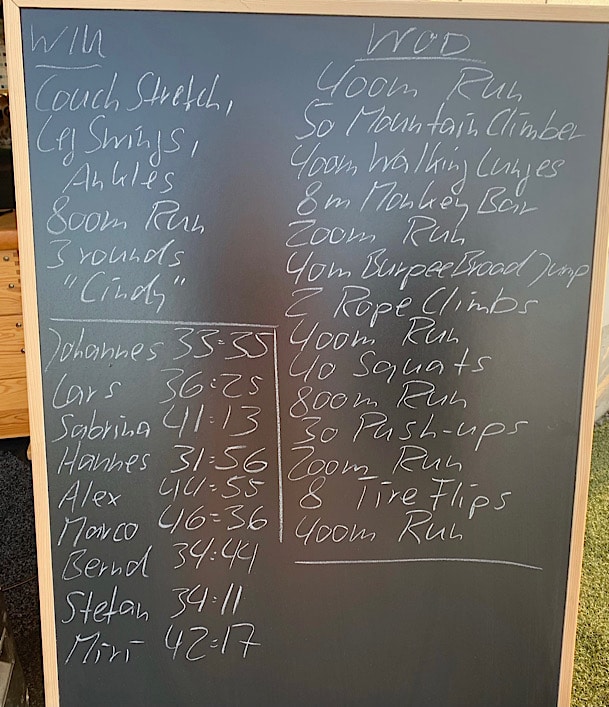 W/U
Couch Stretch,
Leg Swings,
Ankles
800m Run
3 rounds
"Cindy"
Johannes 33:35
Lars 36:25
Sabrina 41:13
Hannes 31:56
Alex 44:55
Marco 46:36
Bernd 34:44
Stefan 34:11
Miri 42:17
WOD
400m Run
50 Mountain Climber
400m Walking Lunges
8m Monkey Bar
200m Run
40m Burpee Broad Jump
2 Rope Climbs
400m Run
40 Squats
800m Run
30 Push-ups
200m Run
8 Tire Flips
400m Run